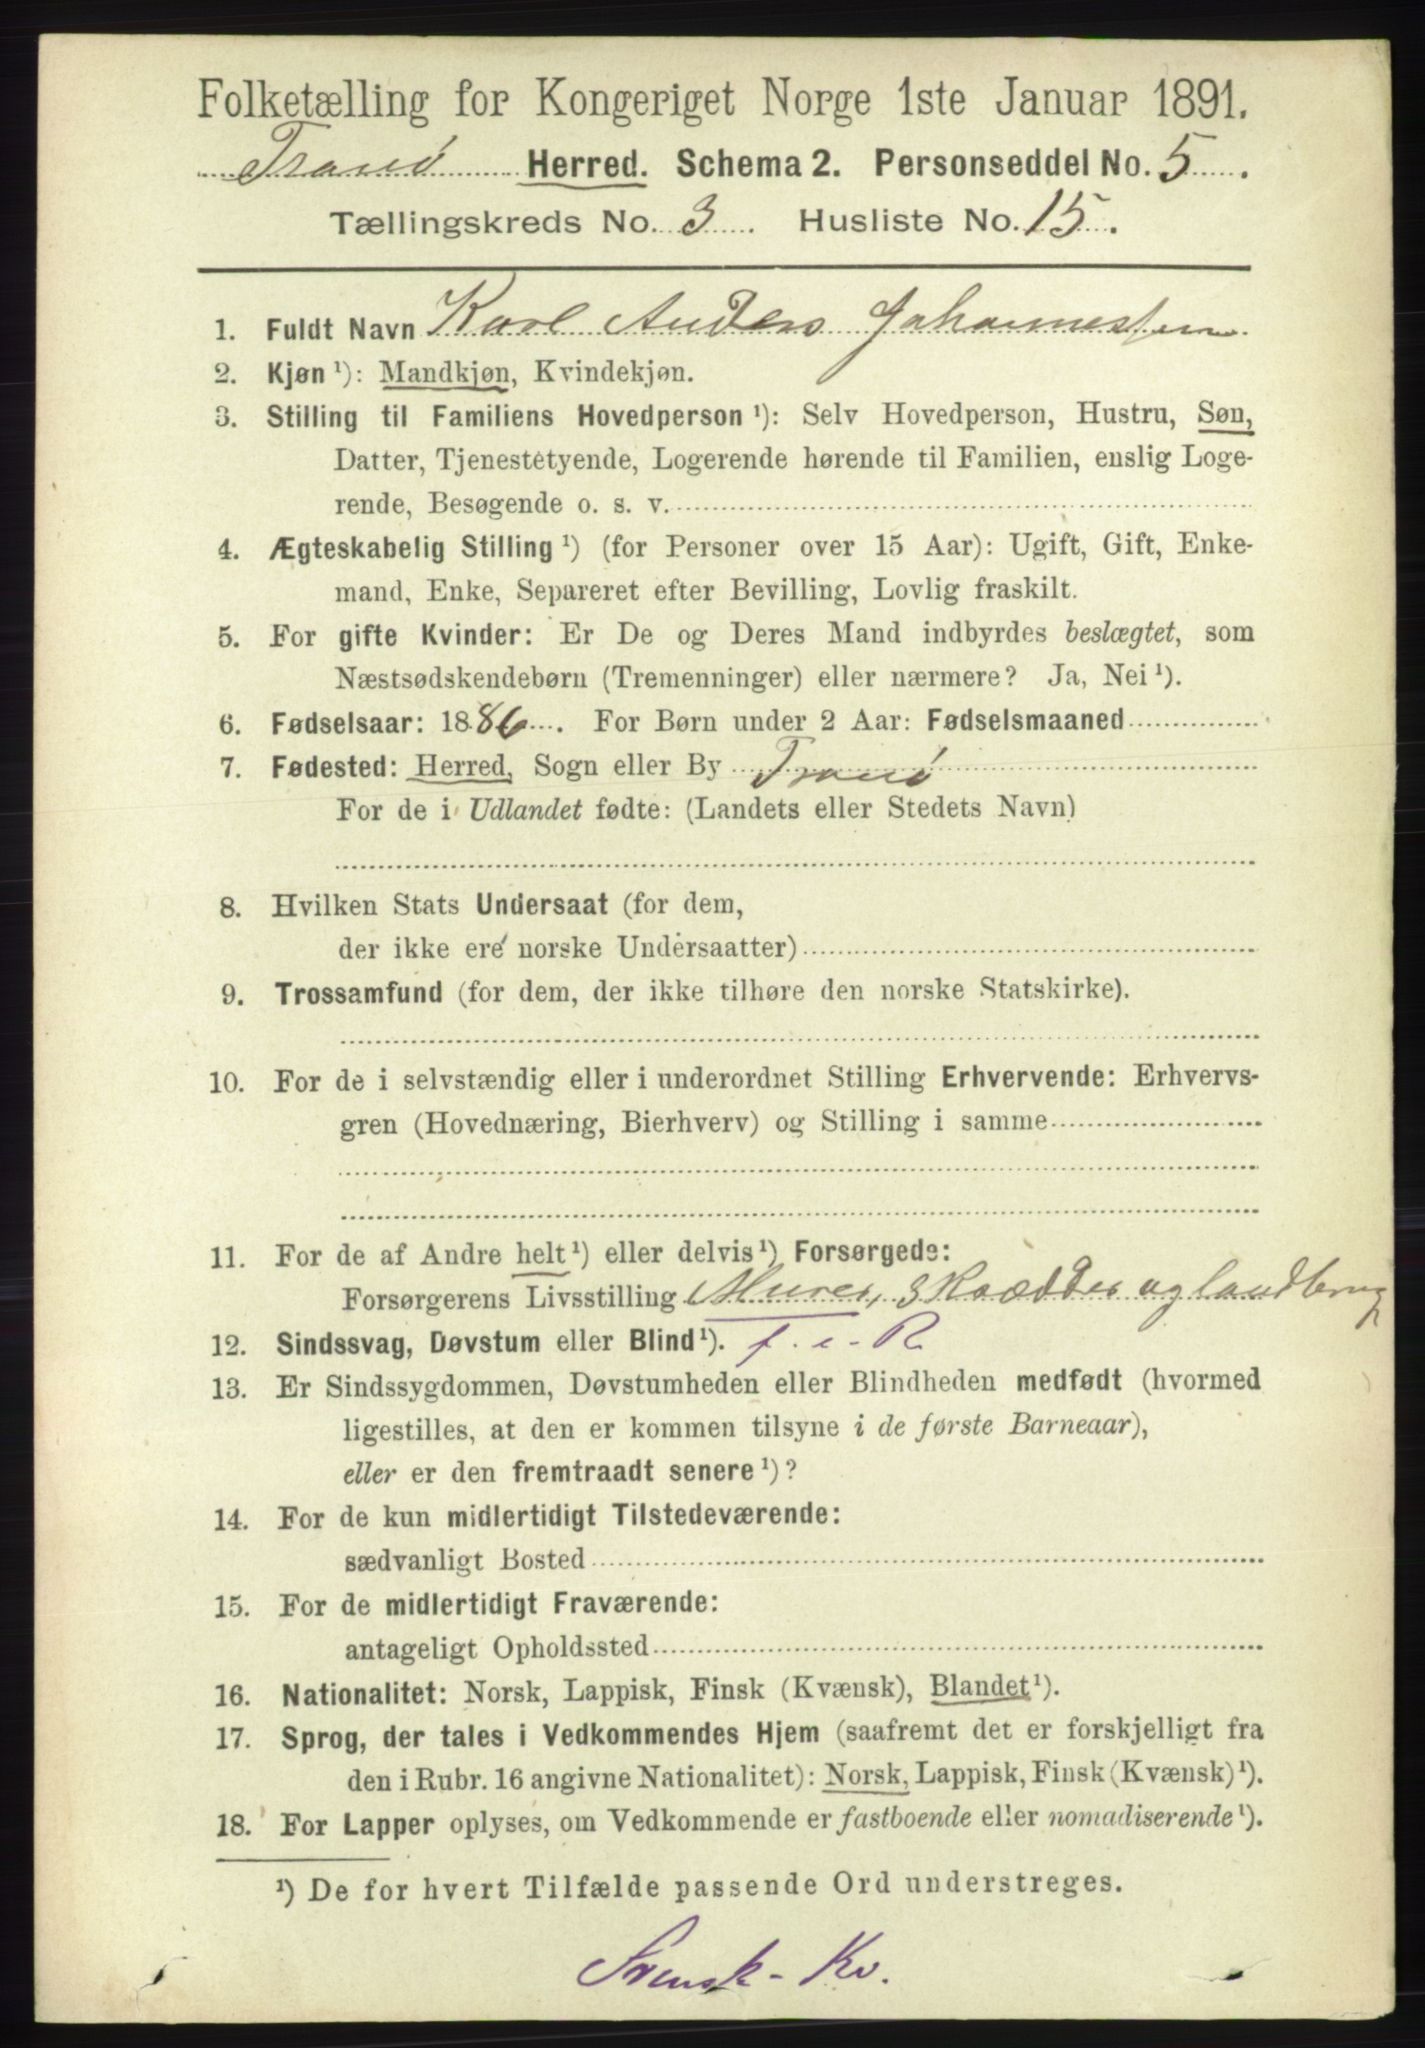 Folketælling for Kongeriget Norge 1ste Januar 1891.
Tranø Herred. Schema 2. Personseddel No. 5.
Tællingskreds No. 3. Husliste No. 15.
1. Fuldt Navn Karl Anders Johannessen
2. Kjøn ¹): Mandkjøn, Kvindekjøn.
3. Stilling til Familiens Hovedperson ¹): Selv Hovedperson, Hustru, Søn,
Datter, Tjenestetyende, Logerende hørende til Familien, enslig Loge-
rende, Besøgende o. s. v.
4. Ægteskabelig Stilling ¹) (for Personer over 15 Aar): Ugift, Gift, Enke-
mand, Enke, Separeret efter Bevilling, Lovlig fraskilt.
5. For gifte Kvinder: Er De og Deres Mand indbyrdes beslægtet, som
Næstsødskendebørn (Tremenninger) eller nærmere? Ja, Nei ¹).
6. Fødselsaar: 1886. For Børn under 2 Aar: Fødselsmaaned
7. Fødested: Herred, Sogn eller By Tranø
For de i Udlandet fødte: (Landets eller Stedets Navn)
8. Hvilken Stats Undersaat (for dem,
der ikke ere norske Undersaatter)
9. Trossamfund (for dem, der ikke tilhøre den norske Statskirke).
10. For de i selvstændig eller i underordnet Stilling Erhvervende: Erhvervs-
gren (Hovednæring, Bierhverv) og Stilling i samme
11. For de af Andre helt ¹) eller delvis ¹) Forsørgede:
Forsørgerens Livsstilling Murer, Skrædder og landbrug
12. Sindssvag, Døvstum eller Blind ¹). f. i. R
13. Er Sindssygdommen, Døvstumheden eller Blindheden medfødt (hvormed
ligestilles, at den er kommen tilsyne i de første Barneaar),
eller er den fremtraadt senere ¹)?
14. For de kun midlertidigt Tilstedeværende:
sædvanligt Bosted
15. For de midlertidigt Fraværende:
antageligt Opholdssted
16. Nationalitet: Norsk, Lappisk, Finsk (Kvænsk), Blandet ¹).
17. Sprog, der tales i Vedkommendes Hjem (saafremt det er forskjelligt fra
den i Rubr. 16 angivne Nationalitet): Norsk, Lappisk, Finsk (Kvænsk) ¹).
18. For Lapper oplyses, om Vedkommende er fastboende eller nomadiserende ¹).
¹) De for hvert Tilfælde passende Ord understreges.
Svensk-Kv.